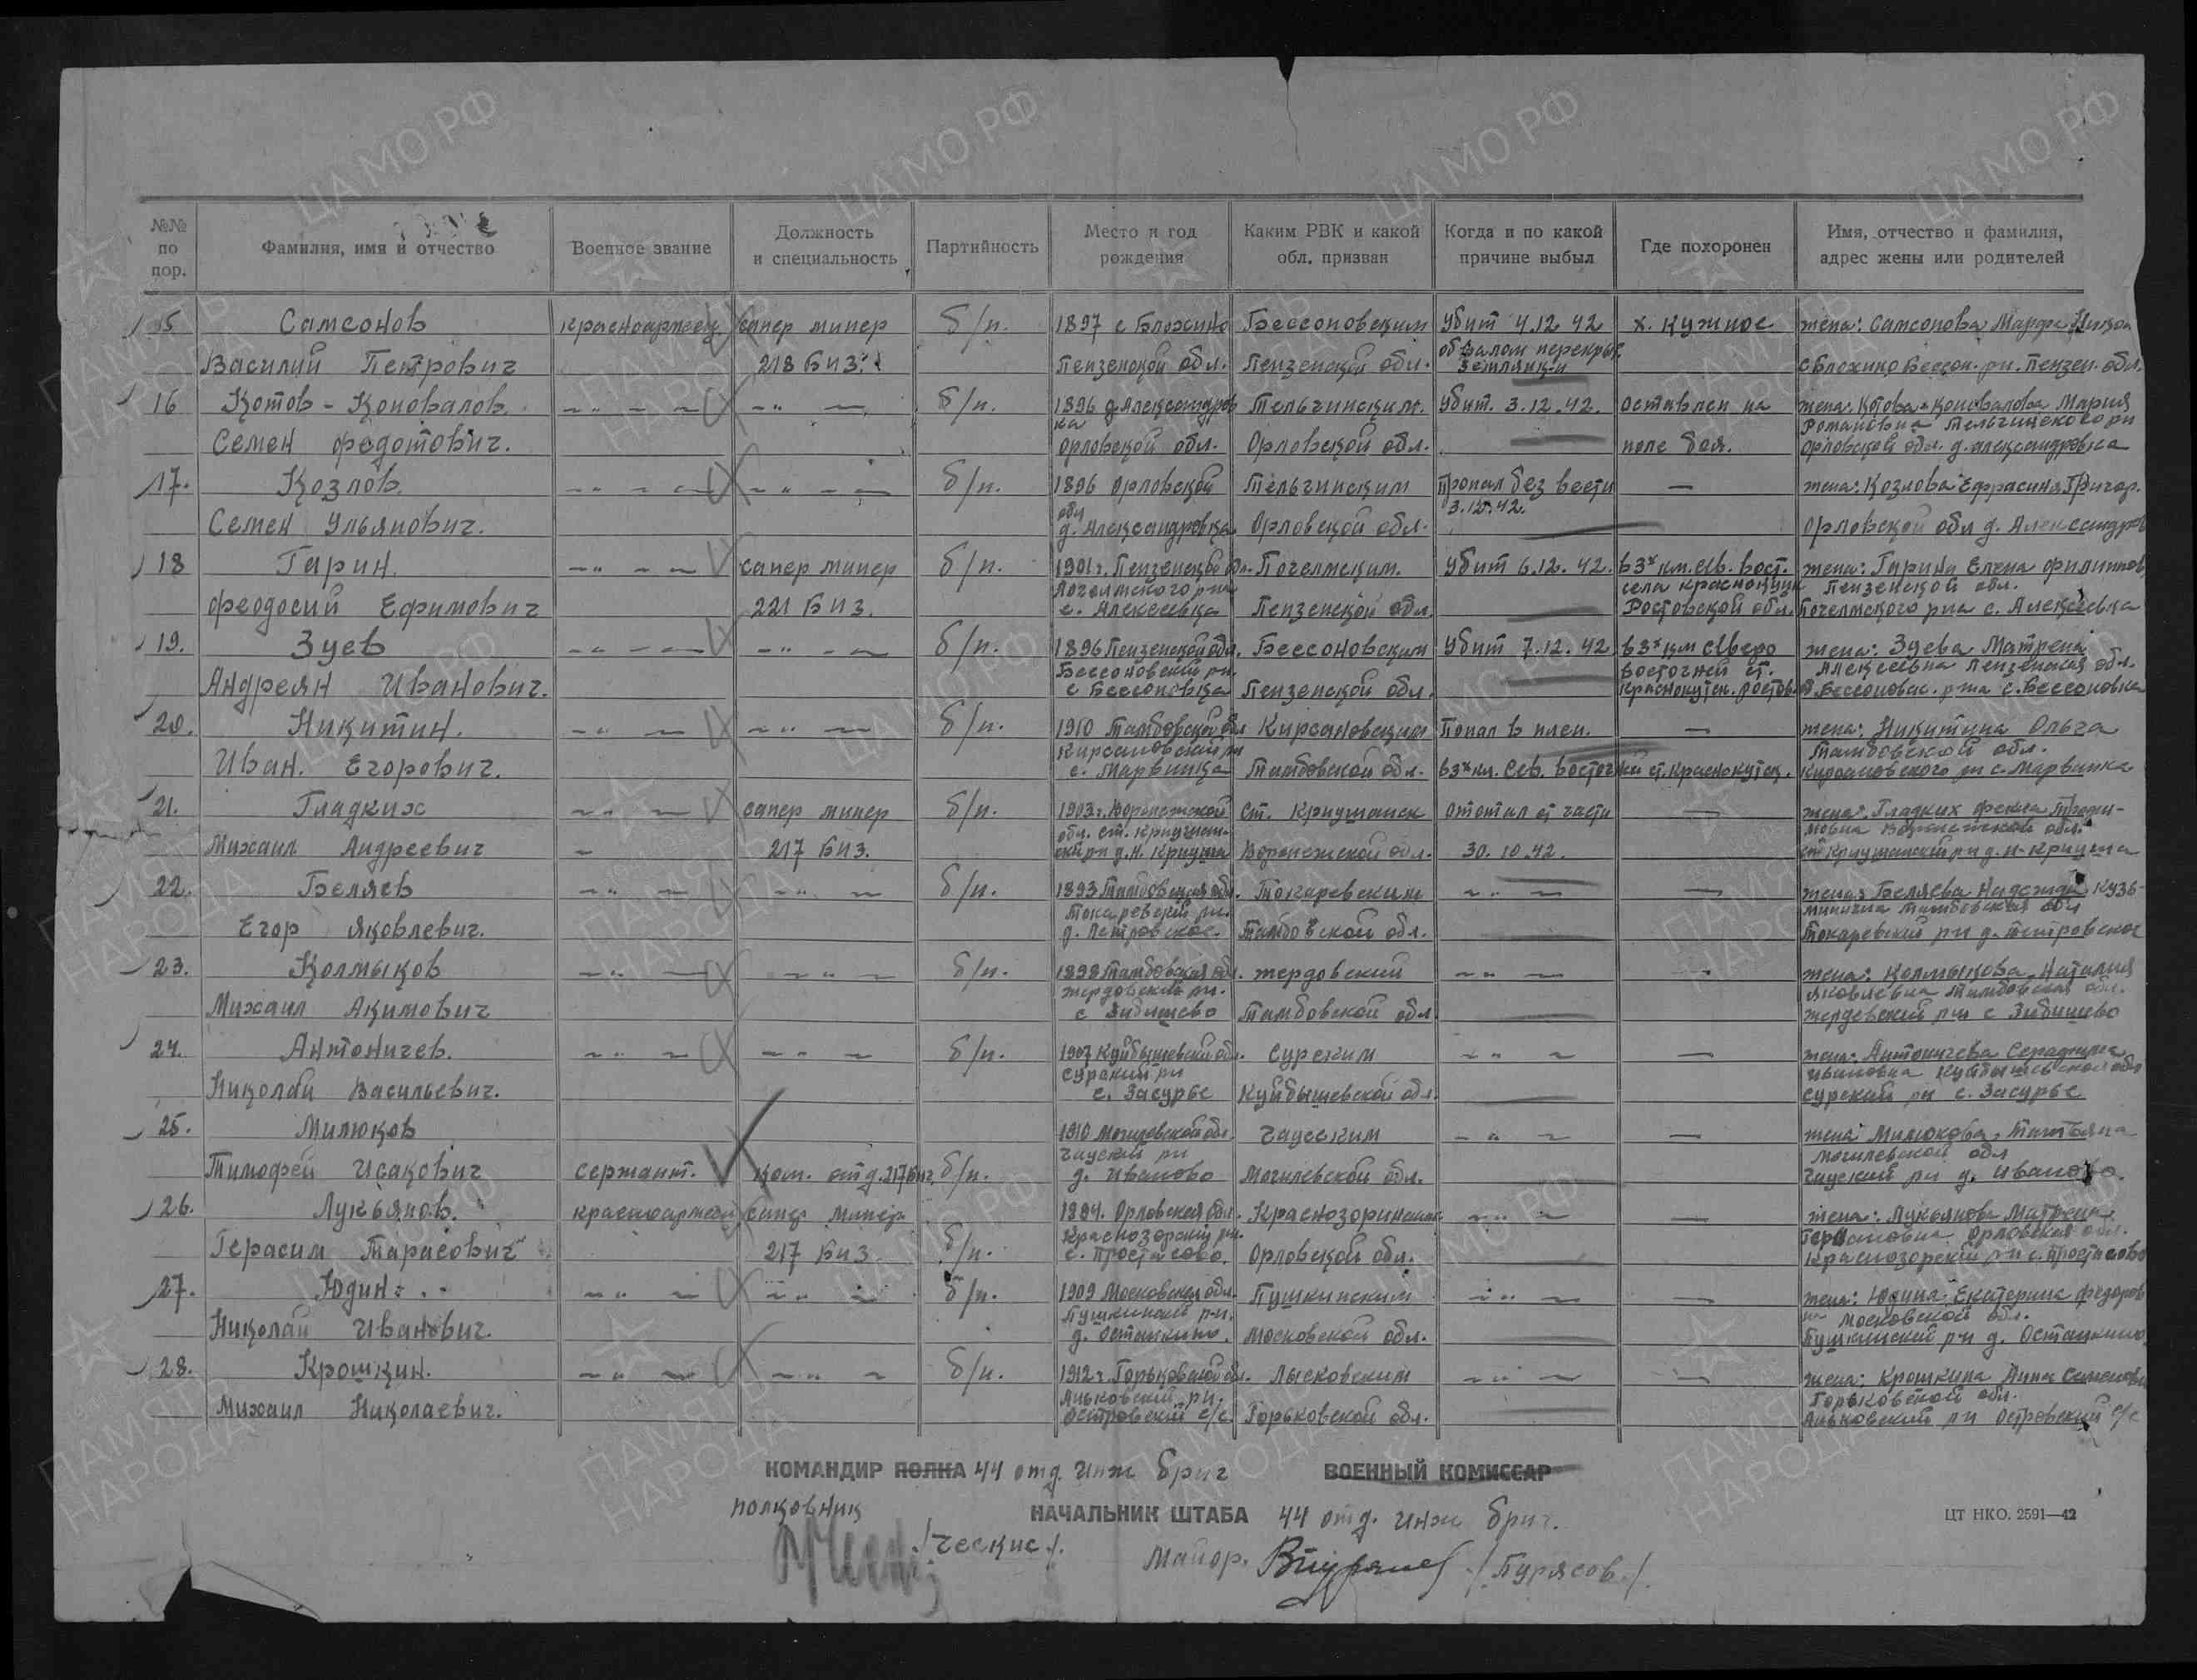 №№ по пор. Фамилия, имя и отчество Военное звание Должность и специальность Партийность Место и год рождения Каким РВК и какой обл. призван Когда и по какой причине выбыл Где похоронен Имя, отчество и фамилия, адрес жены или родителей
15 Самсонов красноармеец сапер минер б/п. 1897 с Блохино Бессоновским Убит 4.12 42 х. Кужное жена: Самсонова Марфа
обвалом перекрыт.
Василий Петрович 218 БИЗ. Пензенской обл. Пензенской обл. землянки с Блохино Бессон. рн. Пензен. обл.
16 Котов - Коновалов. —〃— —〃— б/п. 1896 д Александров Тельчинским. Убит. 3.12.42. Оставлен на жена: Котова-Коновалова Мария
ка Романовна Тельчинского рн
Семен Федотович. Орловской обл. Орловской обл. поле боя. Орловской обл. д. Александровка
17. Козлов. —〃— —〃— б/п. 1896 Орловской Тельчинским Пропал без вести — жена: Козлова Ефрасиня Григор.
обл 3.12.42.
Семен Ульянович. д. Александровка Орловской обл. Орловской обл д. Александров
18 Гарин. —〃— сапер минер б/п. 1901г. Пензенской обл. Почелмским. Убит 6.12.42. в 3х км. сев. вост. жена: Гарина Елена Филиппов
Почелмского рна села Краснокутск Пензенской обл.
Феодосий Ефимович 221 БИЗ. с. Алексеевка Пензенской обл. Ростовской обл. Почелмского рна с. Алексеевка
19. Зуев —〃— —〃— б/п. 1896 Пензенской обл. Бессоновским Убит 7.12.42 в 3х км северо жена: Зуева Матрена
Бессоновский рн. восточней ст. Алексеевна Пензенская обл.
Андреян Иванович. с Бессоновка Пензенской обл. Краснокутск. Ростов. Бессоновск. рна с. Бессоновка
20. Никитин. —〃— —〃— б/п. 1910 Тамбовской обл Кирсановским Попал в плен. — жена: Никитина Ольга
Кирсановский рн Тамбовской обл.
Иван. Егорович. с. Марвинка Тамбовской обл. в 3х км. Сев. восточней ст. Краснокутск. Кирсановского рн с. Марвинка
21. Гладких —〃— сапер минер б/п. 1903г. Воронежской Ст. Криушанск Отстал от части — жена: Гладких Фекла
обл. ст. Криушан- Воронежской обл.
Михаил Андреевич — 217 БИЗ. ский рн д. Н. Криуша Воронежской обл. 30.10.42. ст Криушанский рн д. Н-Криуша
22. Беляев —〃— —〃— б/п. 1893 Тамбовская обл. Токаревским —〃— — жена: Беляева Надежда Кузь-
Токаревский рн. минична Тамбовская обл
Егор Яковлевич. д. Петровское. Тамбовской обл. Токаревский рн д. Петровское
23. Колмыков —〃— —〃— б/п. 1898 Тамбовская обл. Жердовский —〃— — жена: Колмыкова Наталия
Жердовский рн. Яковлевна Тамбовская обл.
Михаил Акимович с Зибишево Тамбовской обл Жердевский рн с Зибишево
24. Антоничев. —〃— —〃— б/п. 1903 Куйбышевской обл. Сурским —〃— — жена: Антоничева Серафима
Сурский рн Ивановна Куйбышевской обл
Николай Васильевич. с. Засурье Куйбышевской обл. Сурский рн с. Засурье
25. Милюков 1910 Могилевской обл. Чауским —〃— — жена Милюкова Татьяна
Чауский рн Могилевской обл
Тимофей Исакович сержант. ком. отд. 217 биз б/п. д. Иваново Могилевской обл. Чауский рн д. Иваново.
26. Лукьянов. красноармеец Сапер минер 1894. Орловская обл. Краснозоринским —〃— — жена: Лукьянова Матрена
Краснозорский рн. Орловская обл.
Герасим Тарасович 217 БИЗ б/п. с. Протасово. Орловской обл. Краснозорский рн с. Протасово
27. Юдин. —〃— —〃— б/п. 1909 Московская обл. Пушкинским —〃— — жена: Юдина Екатерина Федоров
Пушкинский р-н. на Московской обл.
Николай Иванович. д. Останкино. Московской обл. Пушкинский рн д. Останкино
28. Крошкин. —〃— —〃— б/п. 1912г. Горьковской обл. Лысковским —〃— — жена: Крошкина Анна Семенов
рн. Горьковской обл.
Михаил Николаевич. Островский с/с. Горьковской обл. рн Островский с/с
КОМАНДИР ПОЛКА 44 отд. инж бриг ВОЕННЫЙ КОМИССАР
полковник НАЧАЛЬНИК ШТАБА 44 отд. инж бриг.
ЦТ НКО. 2591—42
/Ческис/.
Майор. /Бурясов/.
ЦАМО РФ
ПАМЯТЬ НАРОДА